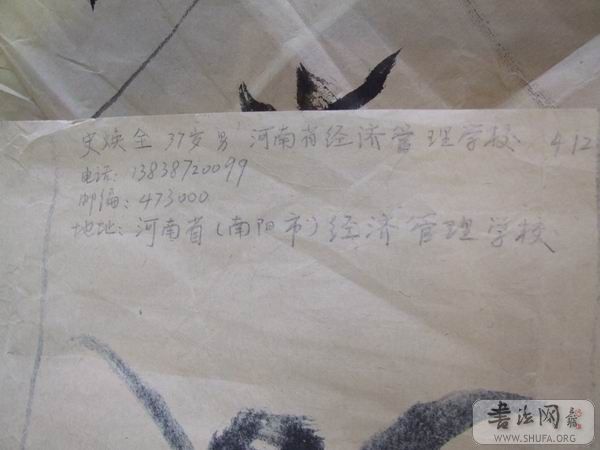 史焕全 37岁 男 河南省经济管理学校 412
电话: 13838720099
邮编: 473000
地址: 河南省(南阳市)经济管理学校
書法网
WWW.SHUFA.ORG